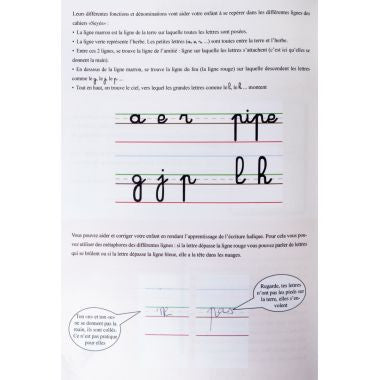 Leurs différentes fonctions et dénominations vont aider votre enfant à se repérer dans les différentes lignes des
cahiers «Seyès» :
• La ligne marron est la ligne de la terre sur laquelle toutes les lettres sont posées.
• La ligne verte représente l'herbe. Les petites lettres (a, u, ...) sont toutes entre la terre et l'herbe.
• Entre ces 2 lignes, se trouve la ligne de l'amitié : ligne sur laquelle les lettres s'attachent (c'est ici qu'elles se
donnent la main).
• En dessous de la ligne marron, se trouve la ligne du feu (la ligne rouge) sur laquelle descendent les lettres
comme le g, le j, le p ...
• Tout en haut, on trouve le ciel, vers lequel les grandes lettres comme le l, le h, ... montent
a e r pipe
g j p l h
Vous pouvez aider et corriger votre enfant en rendant l'apprentissage de l'écriture ludique. Pour cela vous pou-
vez utiliser des métaphores des différentes lignes : si la lettre dépasse la ligne rouge vous pouvez parler de lettres
qui se brûlent ou si la lettre dépasse la ligne bleue, elle a la tête dans les nuages.
Regarde, tes lettres
n'ont pas les pieds sur
la terre, elles s'en-
volent
Ton «n» et ton «e»
ne se donnent pas la
main, ils sont collés.
Ce n'est pas pratique
pour elles